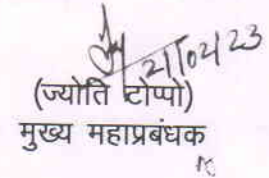 21/02/23
(ज्योति टोप्पो)
मुख्य महाप्रबंधक